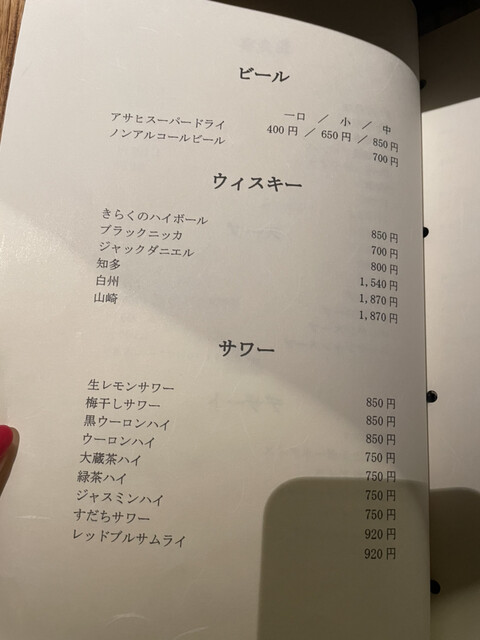 ビール
一口 ／ 小 ／ 中
アサヒスーパードライ 400円 ／ 650円 ／ 850円
ノンアルコールビール 700円
ウィスキー
きらくのハイボール 850円
ブラックニッカ 700円
ジャックダニエル 800円
知多 1,540円
白州 1,870円
山崎 1,870円
サワー
生レモンサワー 850円
梅干しサワー 850円
黒ウーロンハイ 850円
ウーロンハイ 750円
大蔵茶ハイ 750円
緑茶ハイ 750円
ジャスミンハイ 750円
すだちサワー 920円
レッドブルサムライ 920円